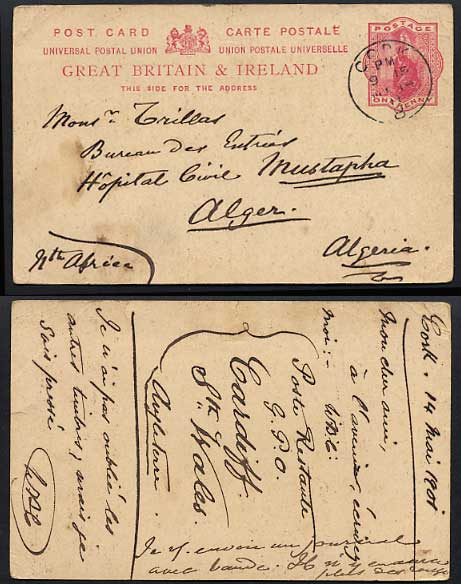 POST CARD
CARTE POSTALE
UNIVERSAL POSTAL UNION
UNION POSTALE UNIVERSELLE
GREAT BRITAIN & IRELAND
THIS SIDE FOR THE ADDRESS
POSTAGE
ONE PENNY
CORK
PM
Monsr Trillas
Bureau des Entrées
Hôpital Civil Mustapha
Alger.
Algeria.
Nth Africa
Cork. 14 Mai 1901
Mon cher ami,
à l'avenir, écrivez
moi :-
Poste Restante
G.P.O.
Cardiff
Sth Wales.
Angleterre.
Je n'ai pas oublié les
autres timbres, mais je
suis pressé
Je v. envoie un journal
avec bande. Il n'y